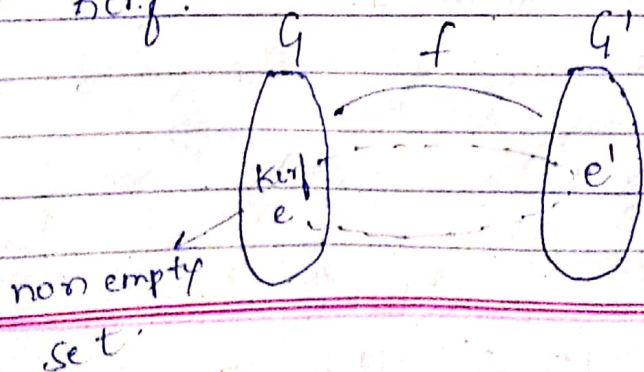 G f G'
Kerf e'
e
non empty
set.